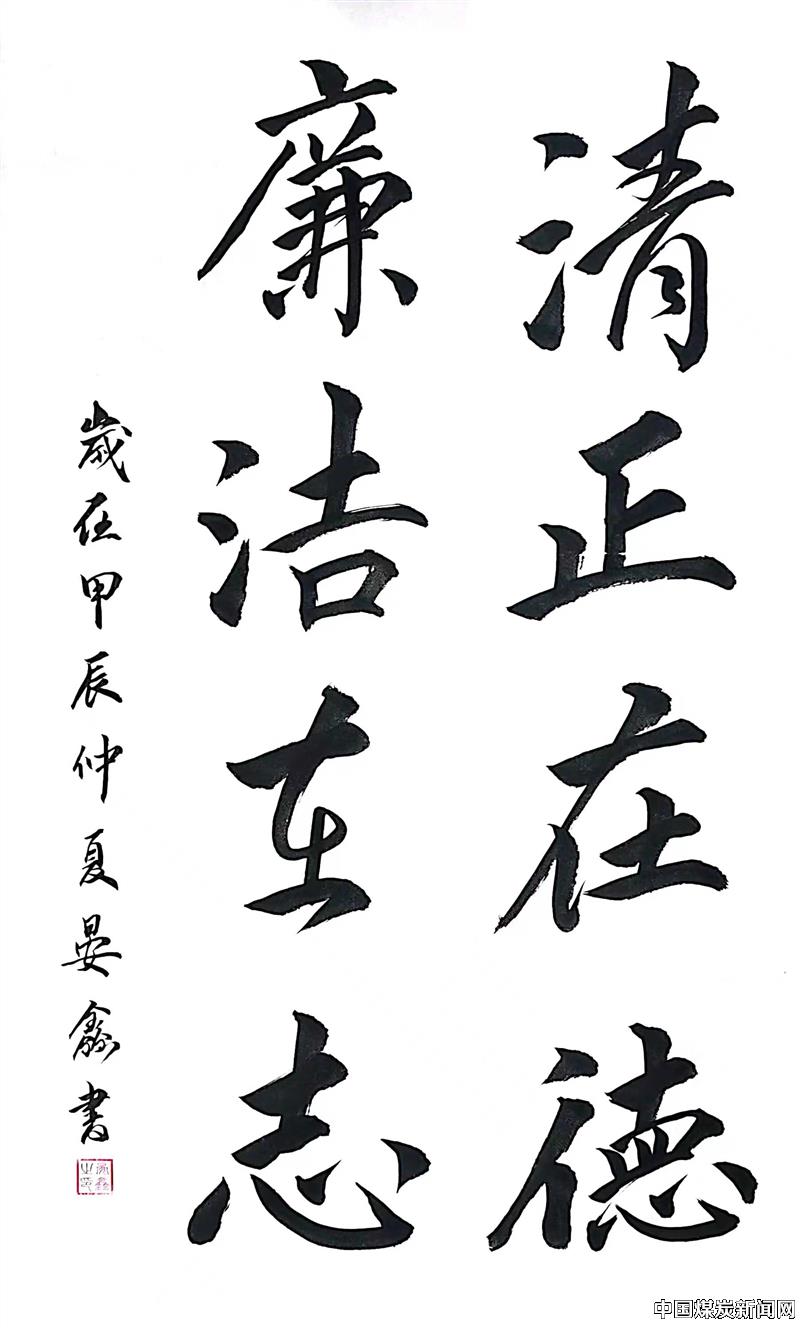 清正在德
廉洁在志
歲在甲辰仲夏晏鑫書
中国煤炭新闻网